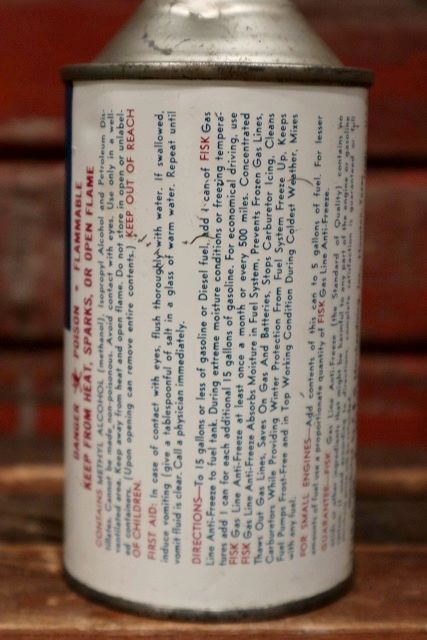 DANGER POISON - FLAMMABLE
KEEP FROM HEAT, SPARKS, OR OPEN FLAME
CONTAINS METHYL ALCOHOL (methanol), Isopropyl Alcohol and Petroleum Dis-
tillates. Cannot be made non-poisonous. Avoid contact with eyes. Use only in a well-
ventilated area. Keep away from heat and open flame. Do not store in open or unlabel-
ed containers. (Upon opening can remove entire contents.) KEEP OUT OF REACH
OF CHILDREN.
FIRST AID: In case of contact with eyes, flush thoroughly with water. If swallowed,
induce vomiting (give a tablespoonful of salt in a glass of warm water. Repeat until
vomit fluid is clear. Call a physician immediately.
DIRECTIONS—To 15 gallons or less of gasoline or Diesel fuel, add 1 can of FISK Gas
Line Anti-Freeze to fuel tank. During extreme moisture conditions or freezing tempera-
tures add 1 can for each additional 15 gallons of gasoline. For economical driving, use
FISK Gas Line Anti-Freeze at least once a month or every 500 miles. Concentrated
FISK Gas Line Anti-Freeze Absorbs Moisture in Fuel System, Prevents Frozen Gas Lines,
Thaws Out Gas Lines, Saves On Gas And Batteries, Stops Carburetor Icing, Cleans
Carburetors While Providing Winter Protection From Fuel System Freeze Up, Keeps
Fuel Pumps Frost-Free and in Top Working Condition During Coldest Weather. Mixes
with any fuel.
FOR SMALL ENGINES—Add contents of this can to 5 gallons of fuel. For lesser
amounts of fuel use a proportionate quantity of FISK Gas Line Anti-Freeze.
GUARANTEE: FISK Gas Line Anti-Freeze (the Standard of Quality) contains no
might be harmful to any part of the engine or gasoline